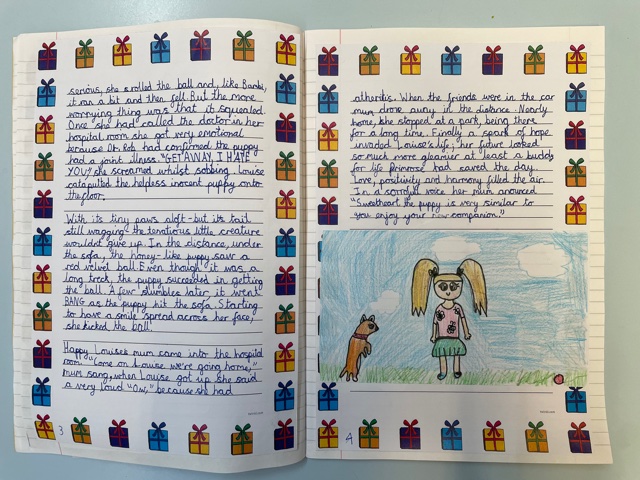 serious, she srolled the ball and, like Bambi,
it ran a bit and then fell. But the more
worrying thing was that it squealed.
Once she had called the doctor in her
hospital room she got very emotional
because Dr. Rob had confirmed the puppy
had a joint illness. "GET AWAY, I HATE
YOU," she screamed whilst sobbing. Louise
catapulted the helpless inocent puppy onto
the floor.
With its tiny paws aloft - but its tail
still wagging - the tenatious little creature
wouldn't give up. In the distance, under
the sofa, the honey-like puppy saw a
red velvet ball. Even though it was a
long treck, the puppy succeeded in getting
the ball. A few stumbles later it went
BANG as the puppy hit the sofa. Starting
to have a smile spread across her face,
she kicked the ball.
Happy Louise's mum came into the hospital
room. "Come on Louise we're going home,"
mum sang, when Louise got up she said
a very loud "Ow," because she had
3
atheritis. When the friends were in the car
mum drove away in the distance. Nearly
home, she stopped at a park, being there
for a long time. Finally a spark of hope
invaded Louise's life; her future looked
so much gleamier at least a buddy
for life (Primrose) had saved the day.
Love, positivity and harmony filled the air.
In a sorrowful voice her mum anounced
"Sweetheart the puppy is very similar to
you enjoy your new companion."
4